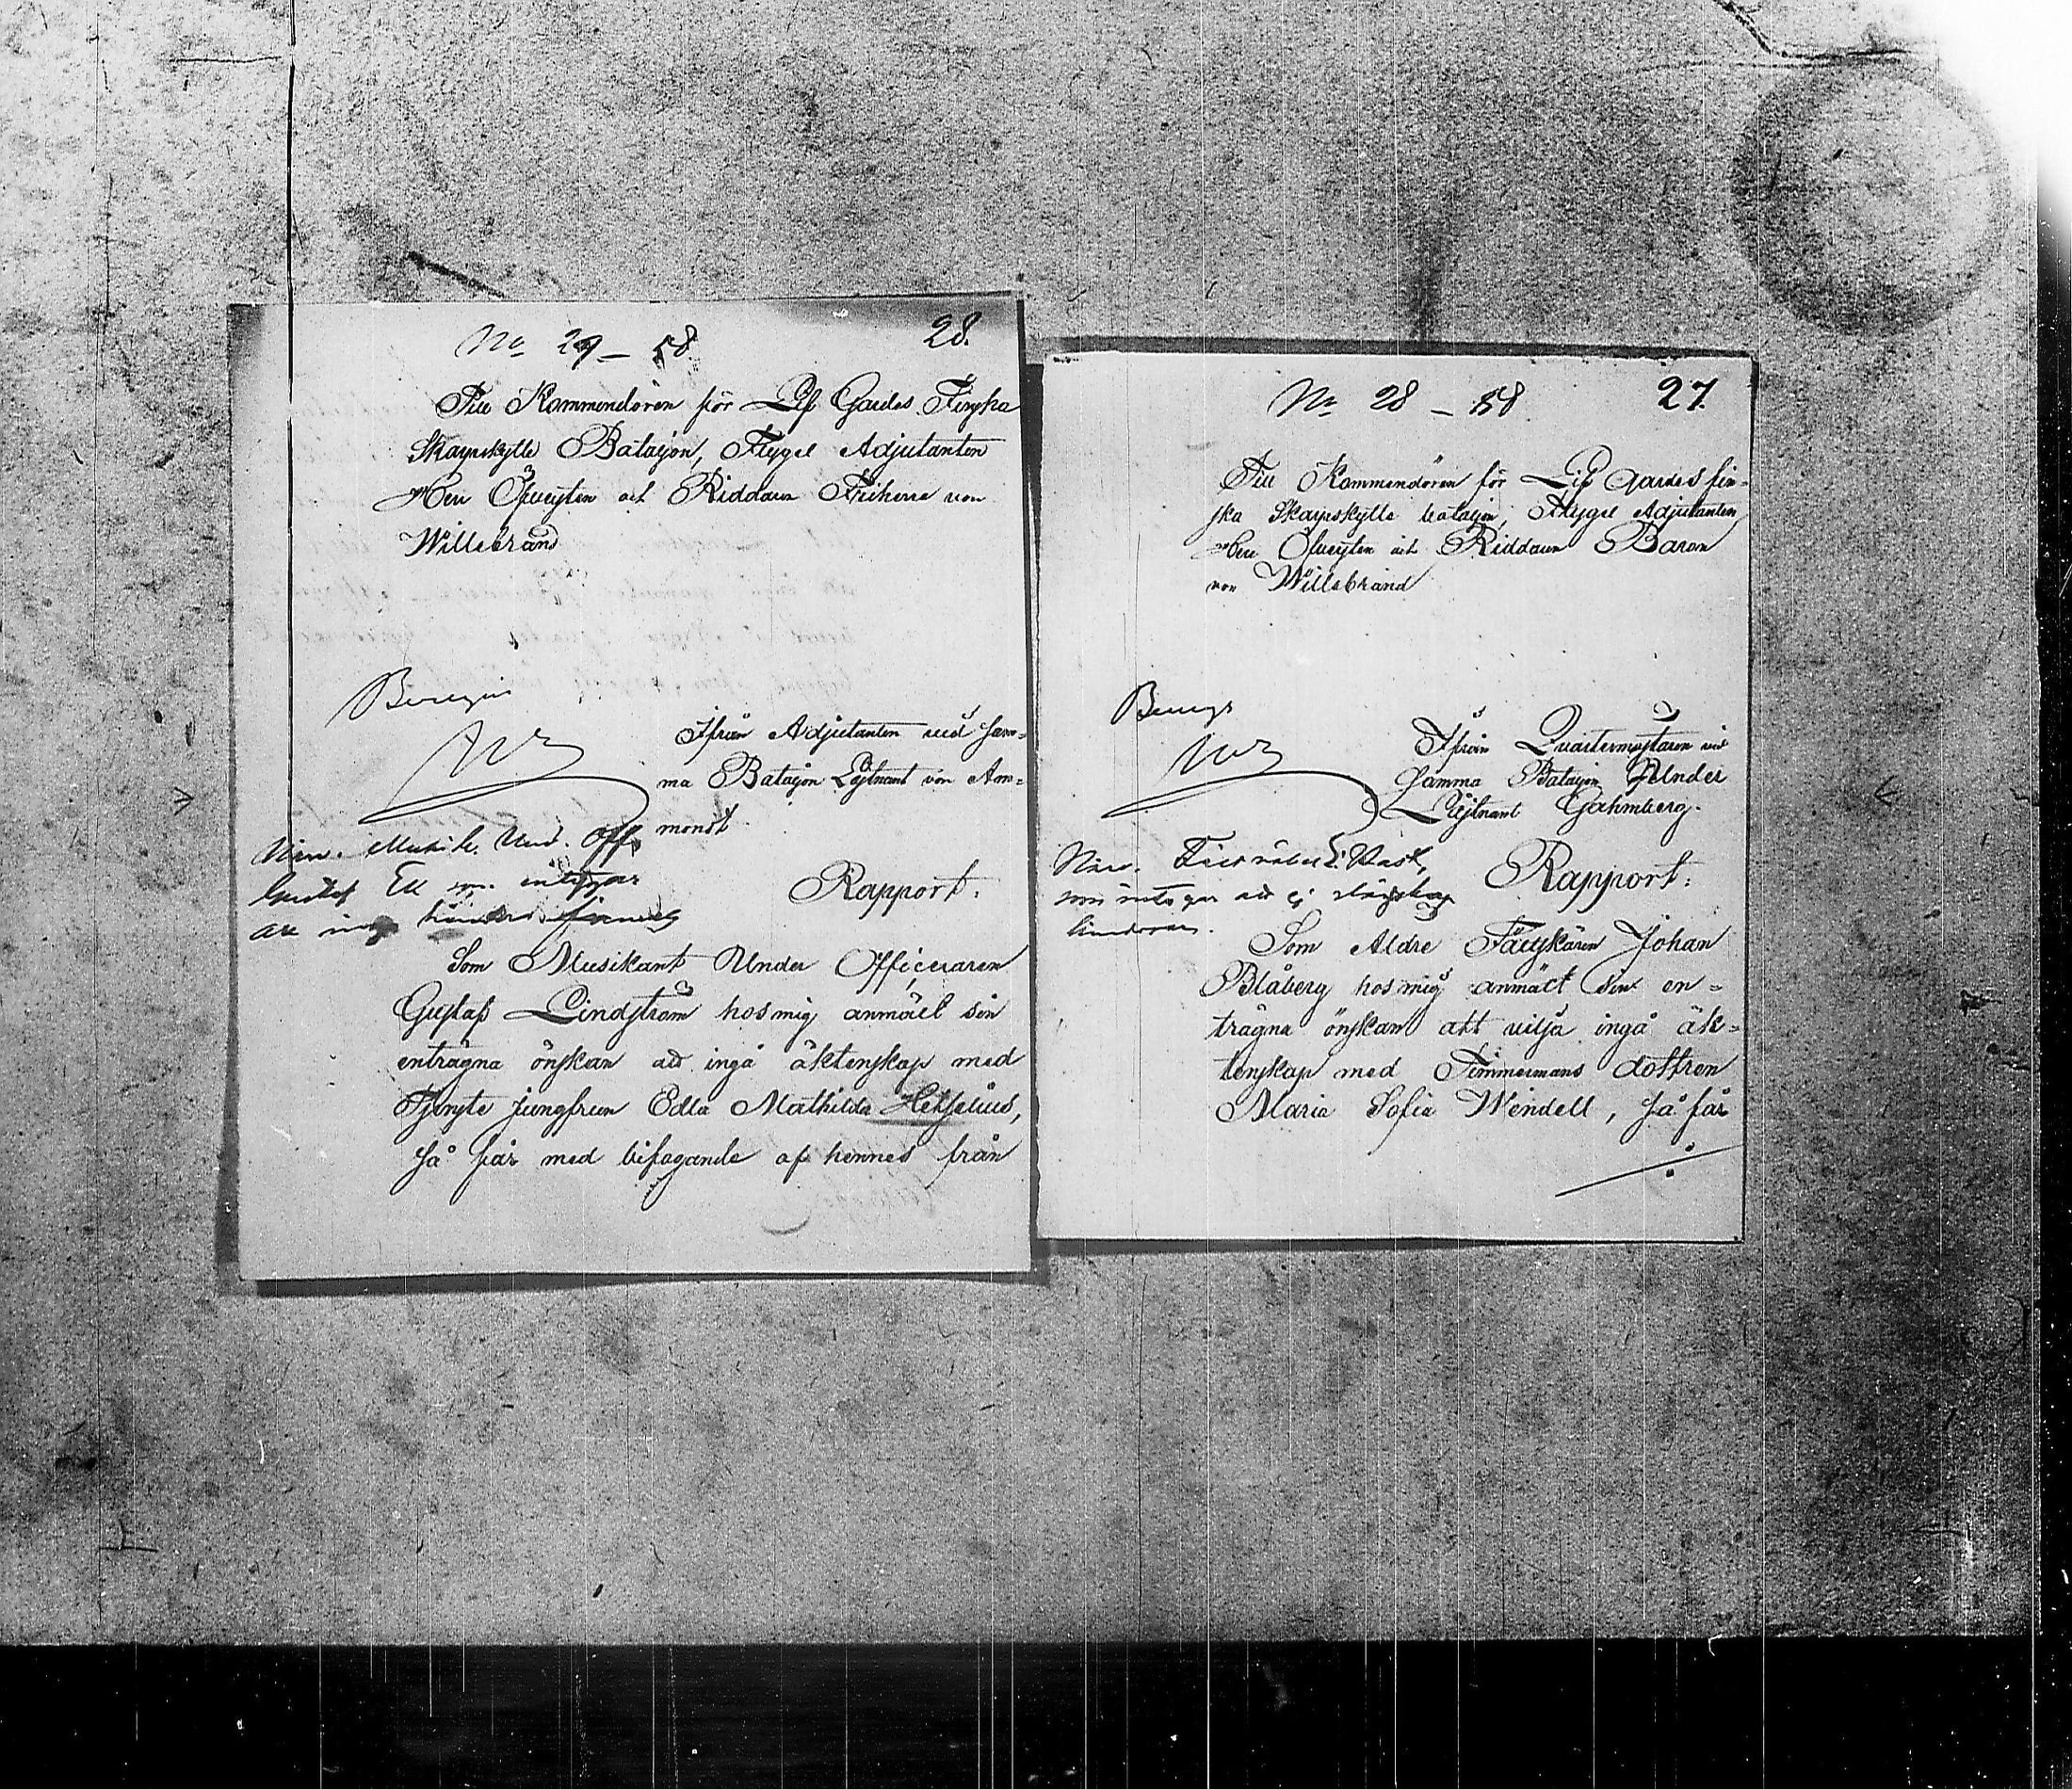 No 29 – 58
28.
Till Kommendören för Lif Gardes Finska
Skarpskytte Bataljon, Flygel Adjutanten
Herr Öfversten och Riddaren Friherre von
Willebrand
Ifrån Adjutanten vid sam=
ma Bataljon Löjtnant von Am=
mondt
Musik. Und. Off.
Gustaf
Rapport:
Som Musikant Under Officeraren
Gustaf Lindström hos mig anmält sin
enträgna önskan att ingå äktenskap med
Tjenste jungfrun Edla Mathilda Helselius,
så får med bifogande af hennes från
No 28 – 58
27.
Till Kommendören för Lif Gardes fin=
ska Skarpskytte bataljon, Flygel Adjutanten
Herr Öfversten och Riddaren Baron
von Willebrand
Ifrån Quartermästaren vid
samma Bataljon Under
Löjtnant Gahmberg.
Rapport:
Som Äldre Fältskären Johan
Blåberg hos mig anmält sin en=
trägna önskan att vilja ingå äk=
tenskap med Timmermans dottren
Maria Sofia Wendell, så får